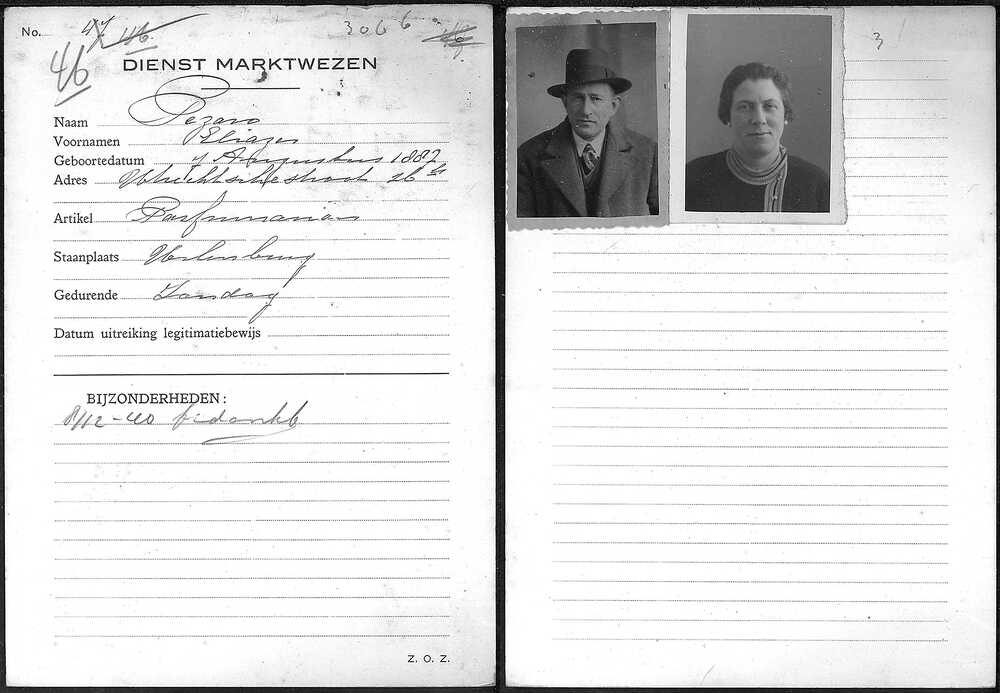 No. 47 46 3066 46
46
DIENST MARKTWEZEN
Naam Pezaro
Voornamen Eliazer
Geboortedatum 4 Augustus 1882
Adres Utrechtschestraat 26
Artikel Parfumerian
Staanplaats Uilenburg
Gedurende Zondag
Datum uitreiking legitimatiebewijs
BIJZONDERHEDEN:
8/12-40 bedankt
Z. O. Z.
3